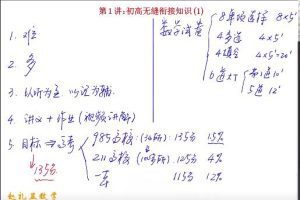 第1讲:初高无缝衔接知识(1)
1. 难
2. 多
3. 以听为主 以记为辅.
4. 讲义+作业(视频讲解)
5. 目标⇒高考
135分
985高校(39所) 135分 15%
211高校(100多所) 125分 4%
一本 115分 12%
数学试卷
8单项选择 8×5'
4多选 4×5'
4填空 4×5'=20'
6道大T
5道12'
赵礼显数学